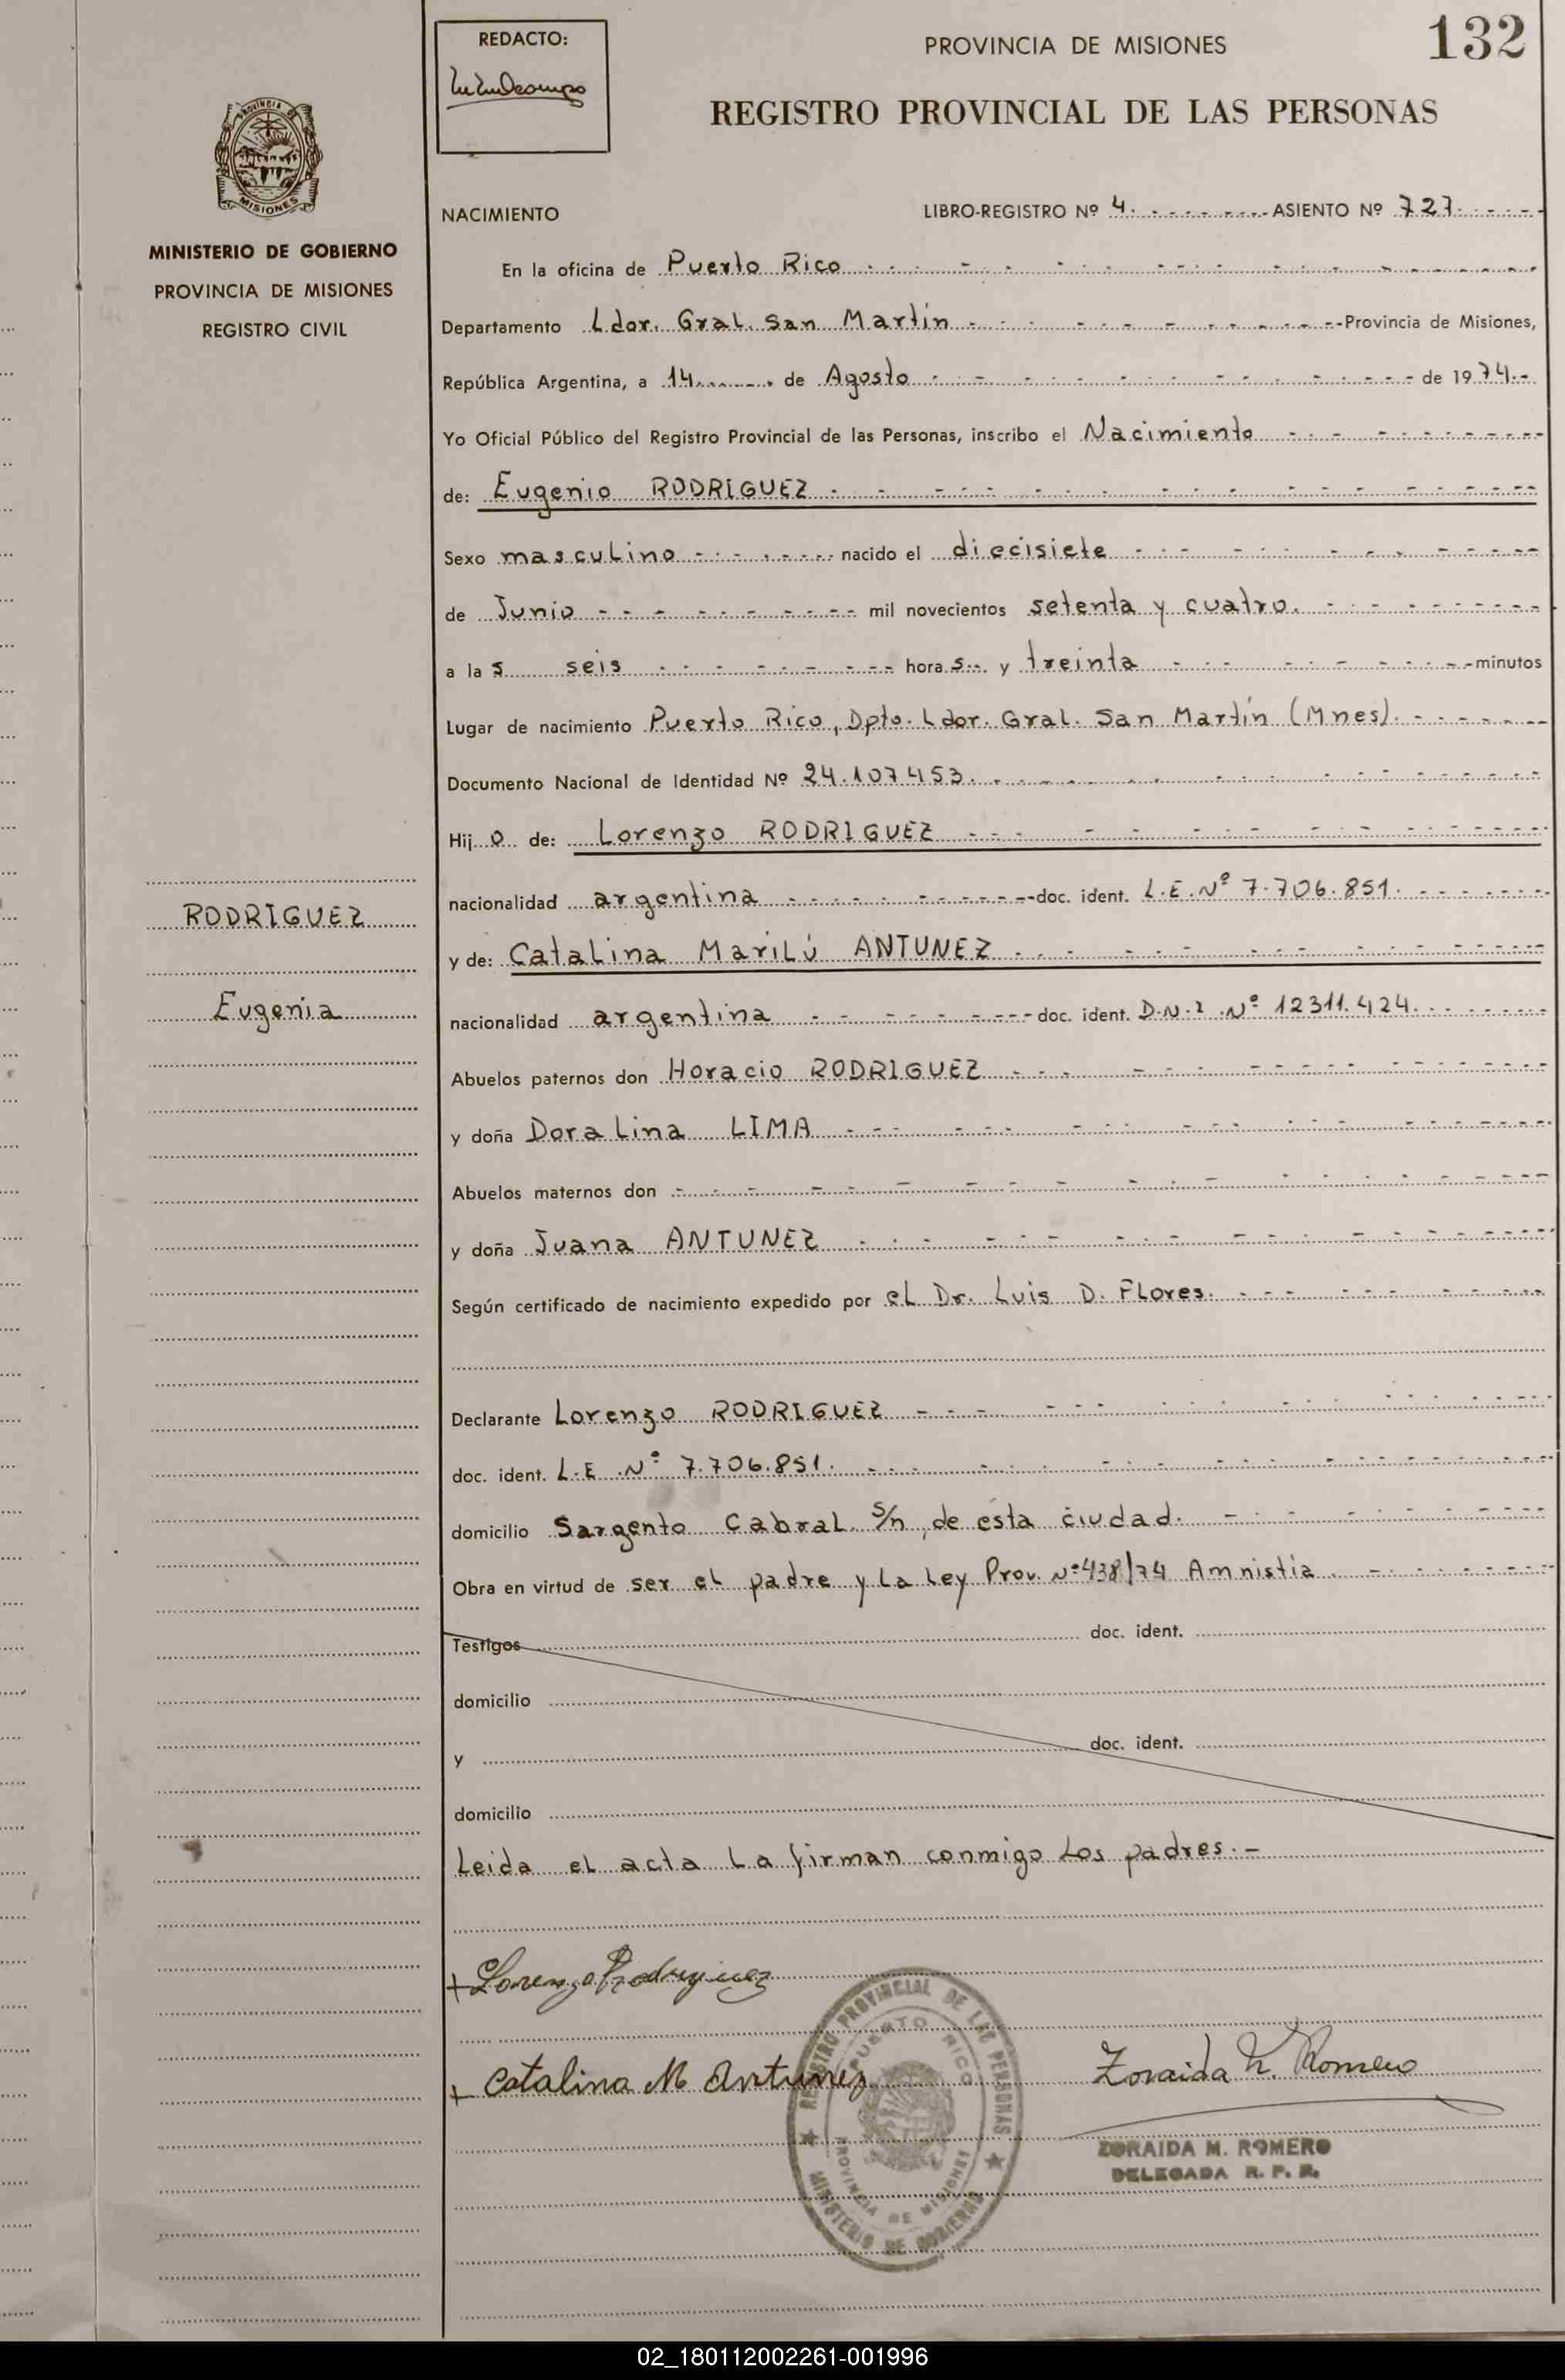 132
REDACTO:
PROVINCIA DE MISIONES
REGISTRO PROVINCIAL DE LAS PERSONAS
PROVINCIA DE
MISIONES
MINISTERIO DE GOBIERNO
PROVINCIA DE MISIONES
REGISTRO CIVIL
NACIMIENTO LIBRO-REGISTRO Nº 4. ASIENTO Nº 727.
En la oficina de Puerto Rico
Departamento Ldor. Gral. San Martín Provincia de Misiones,
República Argentina, a 14 de Agosto de 1974.-
Yo Oficial Público del Registro Provincial de las Personas, inscribo el Nacimiento
de: Eugenio RODRIGUEZ
Sexo masculino nacido el diecisiete
de Junio mil novecientos setenta y cuatro.
a las seis horas y treinta minutos
Lugar de nacimiento Puerto Rico, Dpto. Ldor. Gral. San Martín (Mnes).
Documento Nacional de Identidad Nº 24.107453.
Hijo de: Lorenzo RODRIGUEZ
nacionalidad argentina doc. ident. L.E. Nº 7.706.851.
RODRIGUEZ
y de: Catalina Marilú ANTUNEZ
Eugenia
nacionalidad argentina doc. ident. D.N.I. Nº 12311.424.
Abuelos paternos don Horacio RODRIGUEZ
y doña Doralina LIMA
Abuelos maternos don
y doña Juana ANTUNEZ
Según certificado de nacimiento expedido por el Dr. Luis D. Flores.
Declarante Lorenzo RODRIGUEZ
doc. ident. L.E. Nº 7.706.851.
domicilio Sargento Cabral s/n, de esta ciudad.
Obra en virtud de ser el padre y la ley Prov. Nº 438/74 Amnistía
Testigos doc. ident.
domicilio
y doc. ident.
domicilio
Leida el acta la firman conmigo los padres.-
+ Lorenzo Rodriguez
+ Catalina M Antunez
Zoraida M. Romero
REGISTRO PROVINCIAL DE LAS PERSONAS
PUERTO RICO
PROVINCIA DE MISIONES
MINISTERIO DE GOBIERNO
ZORAIDA M. ROMERO
DELEGADA R. P. P.
02_180112002261-001996